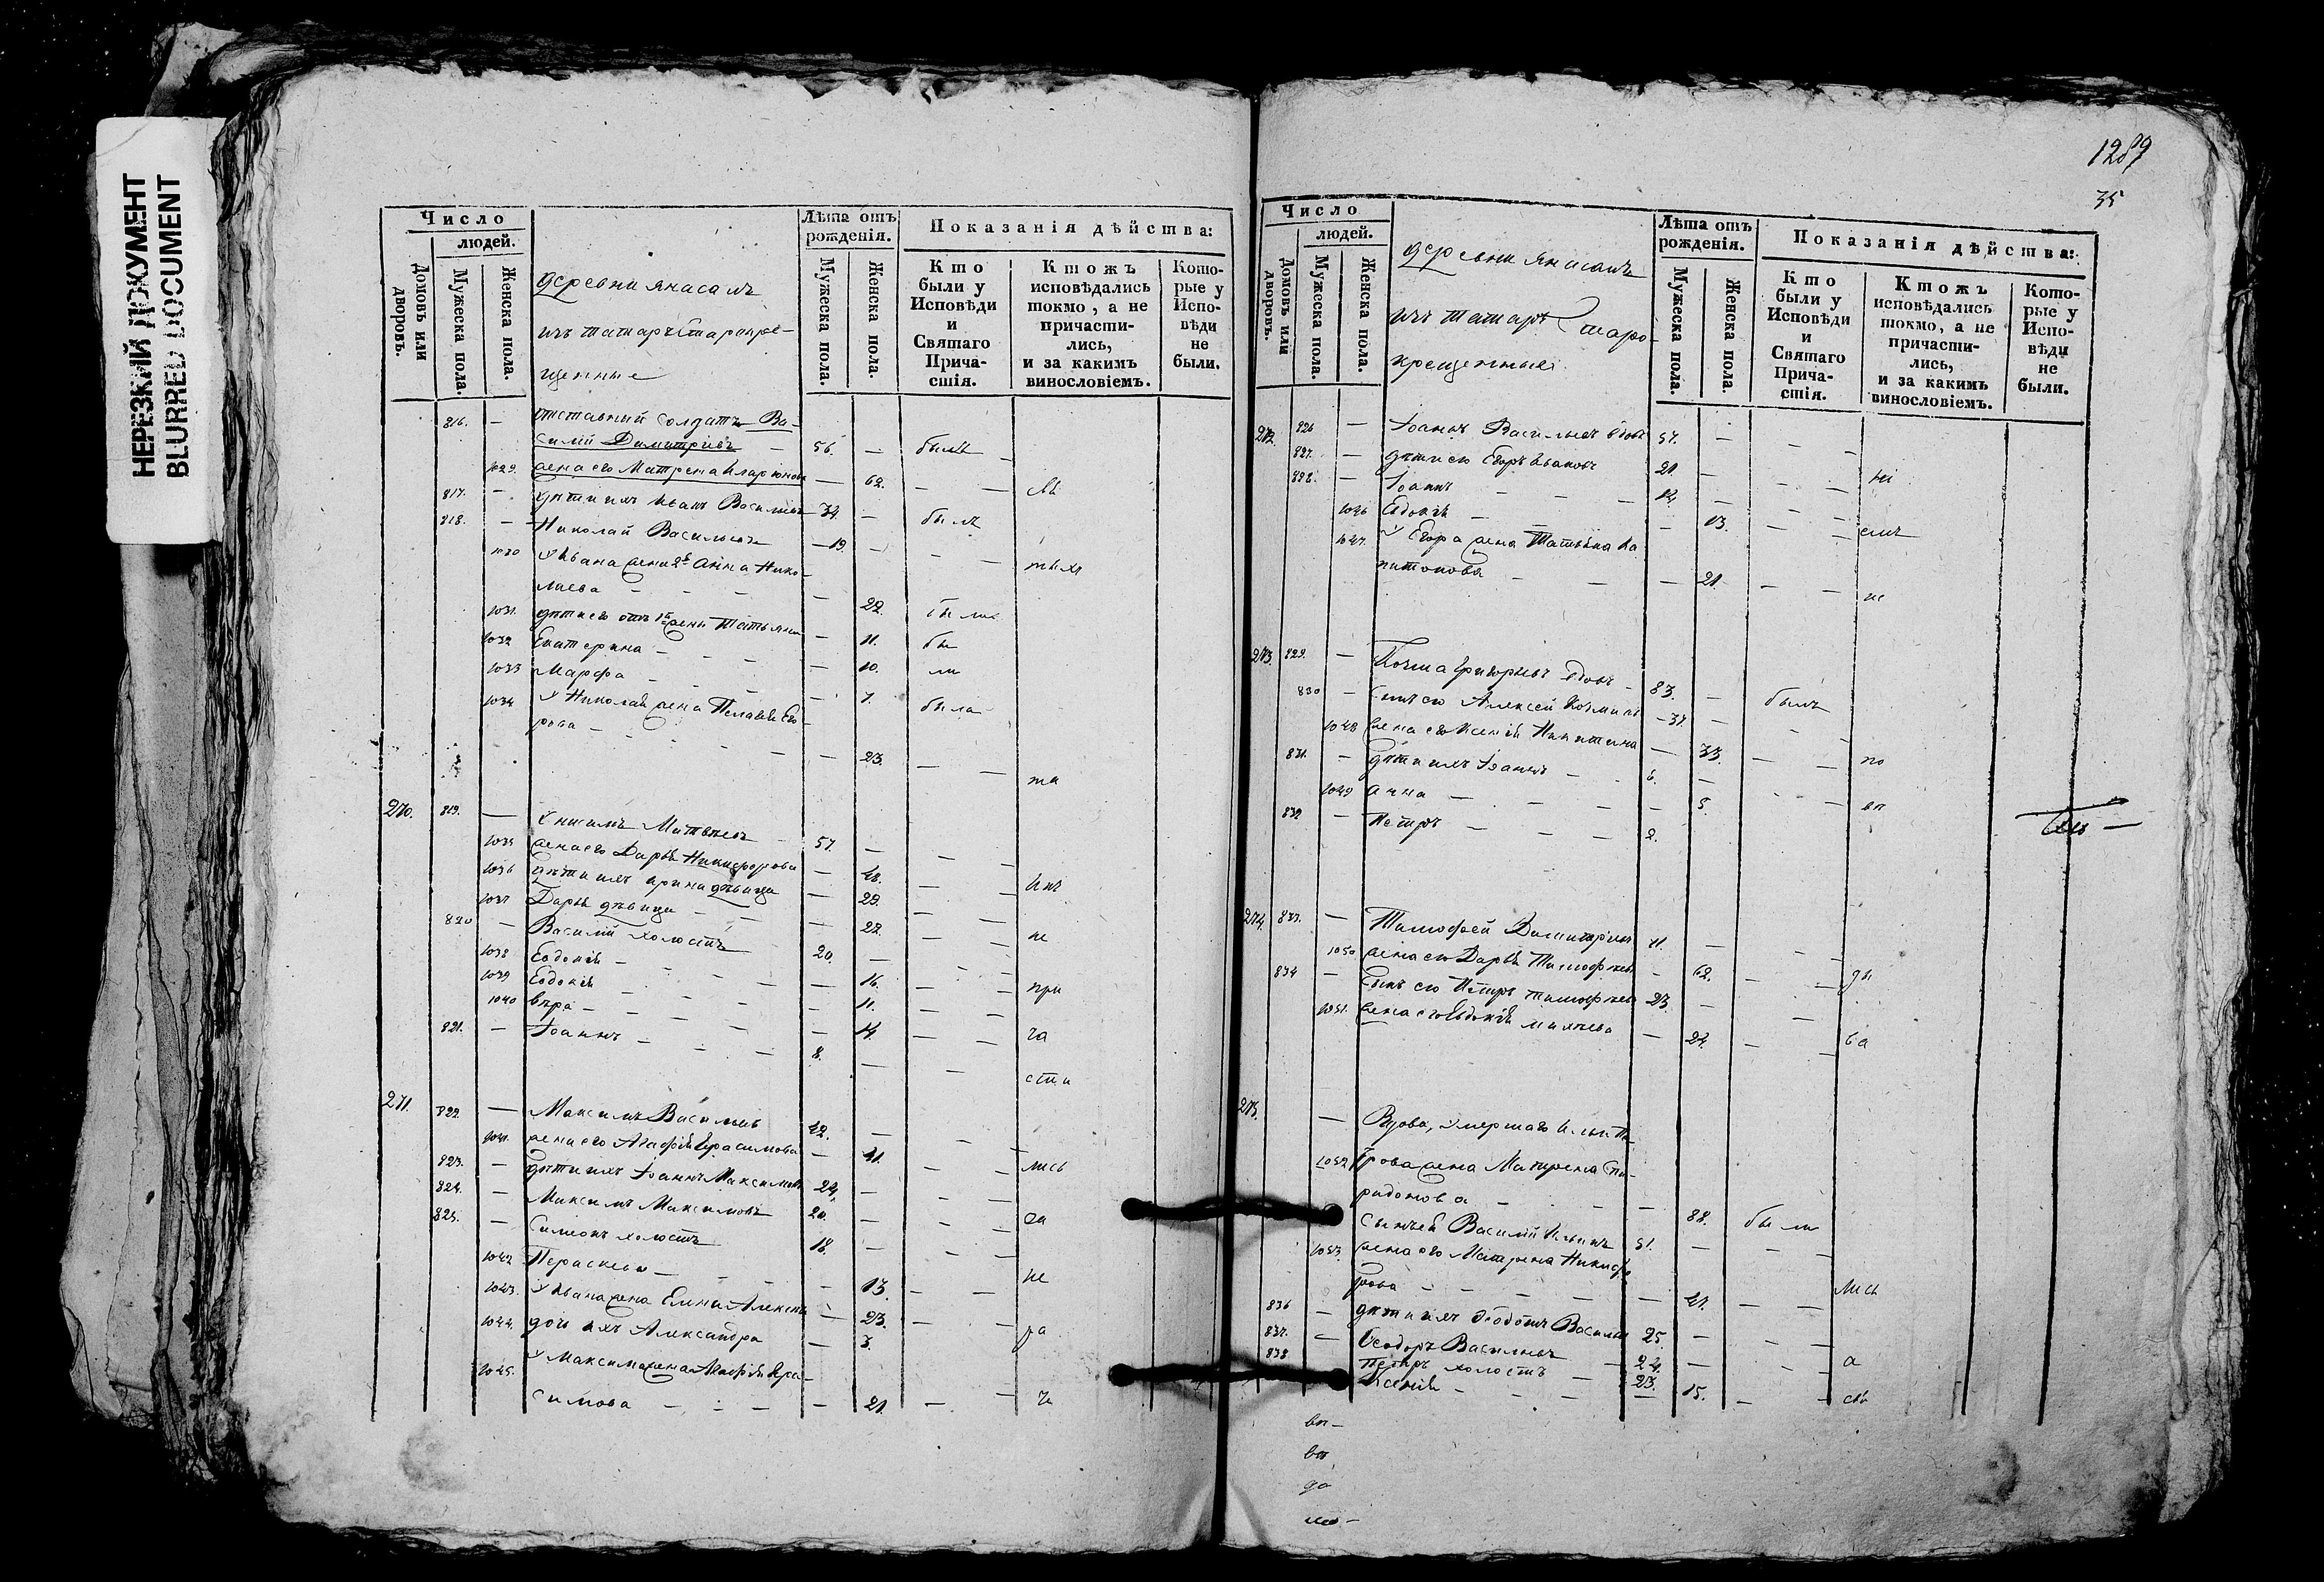 НЕРЕЗКИЙ ДОКУМЕНТ
BLURRED DOCUMENT
Число
людей.
Домовъ или дворовъ.
Мужеска пола.
Женска пола.
деревни янасалъ
изъ татаръ старокре-
щенные
Лѣта отъ рожденія.
Мужеска пола.
Женска пола.
Показанія дѣйства:
Кто были у Исповѣди и Святаго Прича-стія.
Ктожъ исповѣдались токмо, а не причасти-лись, и за какимъ винословіемъ.
Кото-рые у Испо-вѣди не были.
816. — отставный солдатъ Ва-
силій Димитріевъ — 56. — былъ
1029. жена его Матрена Иларіонова — 62.
817. — дѣти ихъ Иванъ Васильевъ 34. — былъ
818. — Николай Васильевъ — 19. —
1030 у Ивана жена 2я Анна Нико-
лаева — 22. были
1031. дѣти его отъ 1й жены Татьяна — 11. бы
1032 Екатерина — 10. ли
1033 Марфа — 7. была
1034 у Николая жена Пелагія Его-
рова — 23.
270. 819. — Матвѣевъ 57. —
1035 жена его Дарья Никифорова — 48.
1036 дѣти ихъ Ирина дѣвица — 29. не
1037 Дарья дѣвица — 27.
820 — Василій холостъ 20. — при
1038 Евдокія — 16.
1039 Евдокія — 11. ча
1040 Вѣра — 14.
821. — Іоаннъ 8. — сти
271. 822. — Максимъ Васильевъ 42. — лись
1041. жена его Агафія Герасимова — 41.
823. — дѣти ихъ Іоаннъ Максимовъ 24. — за
824. — Максимъ Максимовъ 20. —
825. — Симеонъ холостъ 18. — не
1042 Параскева — 13.
1043. у Ивана жена Елена Алексѣева — 23. ра
1044. дочь ихъ Александра — 3.
1045. у Максима жена Агафія Гера-
симова — 21.
1289
35
Число
людей.
Домовъ или дворовъ.
Мужеска пола.
Женска пола.
деревни янасалъ
изъ татаръ старо-
крещенныхъ
Лѣта отъ рожденія.
Мужеска пола.
Женска пола.
Показанія дѣйства:
Кто были у Исповѣди и Святаго Прича-стія.
Ктожъ исповѣдались токмо, а не причасти-лись, и за какимъ винословіемъ.
Кото-рые у Испо-вѣди не были.
272. 826 — Іоаннъ Васильевъ вдовъ 57. —
827. — дѣти его Егоръ Ивановъ 21 —
828. — Іоаннъ 14. —
1046 Евдокія — 13.
1047. у Егора жена Татьяна Ка
питонова — 21. не
273. 829. — Козма Григорьевъ вдовъ — 83. — былъ
830 — сынъ его Алексей Козминъ — 37. —
1048 жена его Ксенія Никитина — 33. по
831. — дѣти ихъ Іоаннъ 6. —
1049 Анна — 5.
832 — Петръ 2.
274. 833. — Тимофей Димитріевъ —
1050 жена его Дарья Тимофеева — 62. ды
834 — сынъ его Петръ Тимофеевъ 23. —
1051. жена его Евдокія — 24. ва
275. — Вдова, умершаго Ильи Пе-
1052 трова жена Матрена Спи-
ридонова — 88. были
сынъ ей Василій Ильинъ 51. —
1053. жена его Матрена Никифо
рова — 47. лись
836 — дѣти ихъ Ѳеодотъ Васильевъ 25. —
837. — Ѳеодоръ Васильевъ — 24. — а
838 Петръ холостъ — 23.
Ксенія — 15.